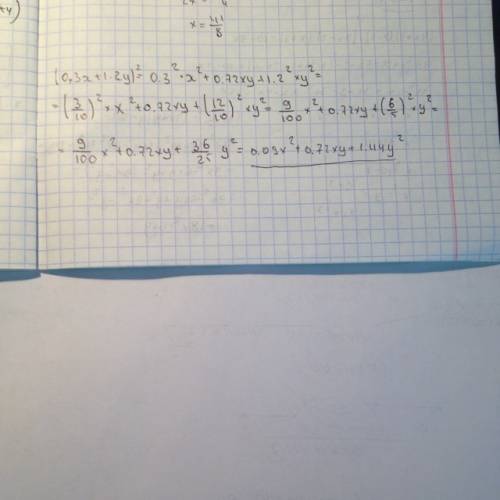 x = 41/8
(0,3x+1.2y)² = 0.3² · x² + 0.72xy + 1.2² × y² =
= (3/10)² × x² + 0.72xy + (12/10)² × y² = 9/100 x² + 0.72xy + (6/5)² × y² =
= 9/100 x² + 0.72xy + 36/25 y² = 0.03x² + 0.72xy + 1.44y²